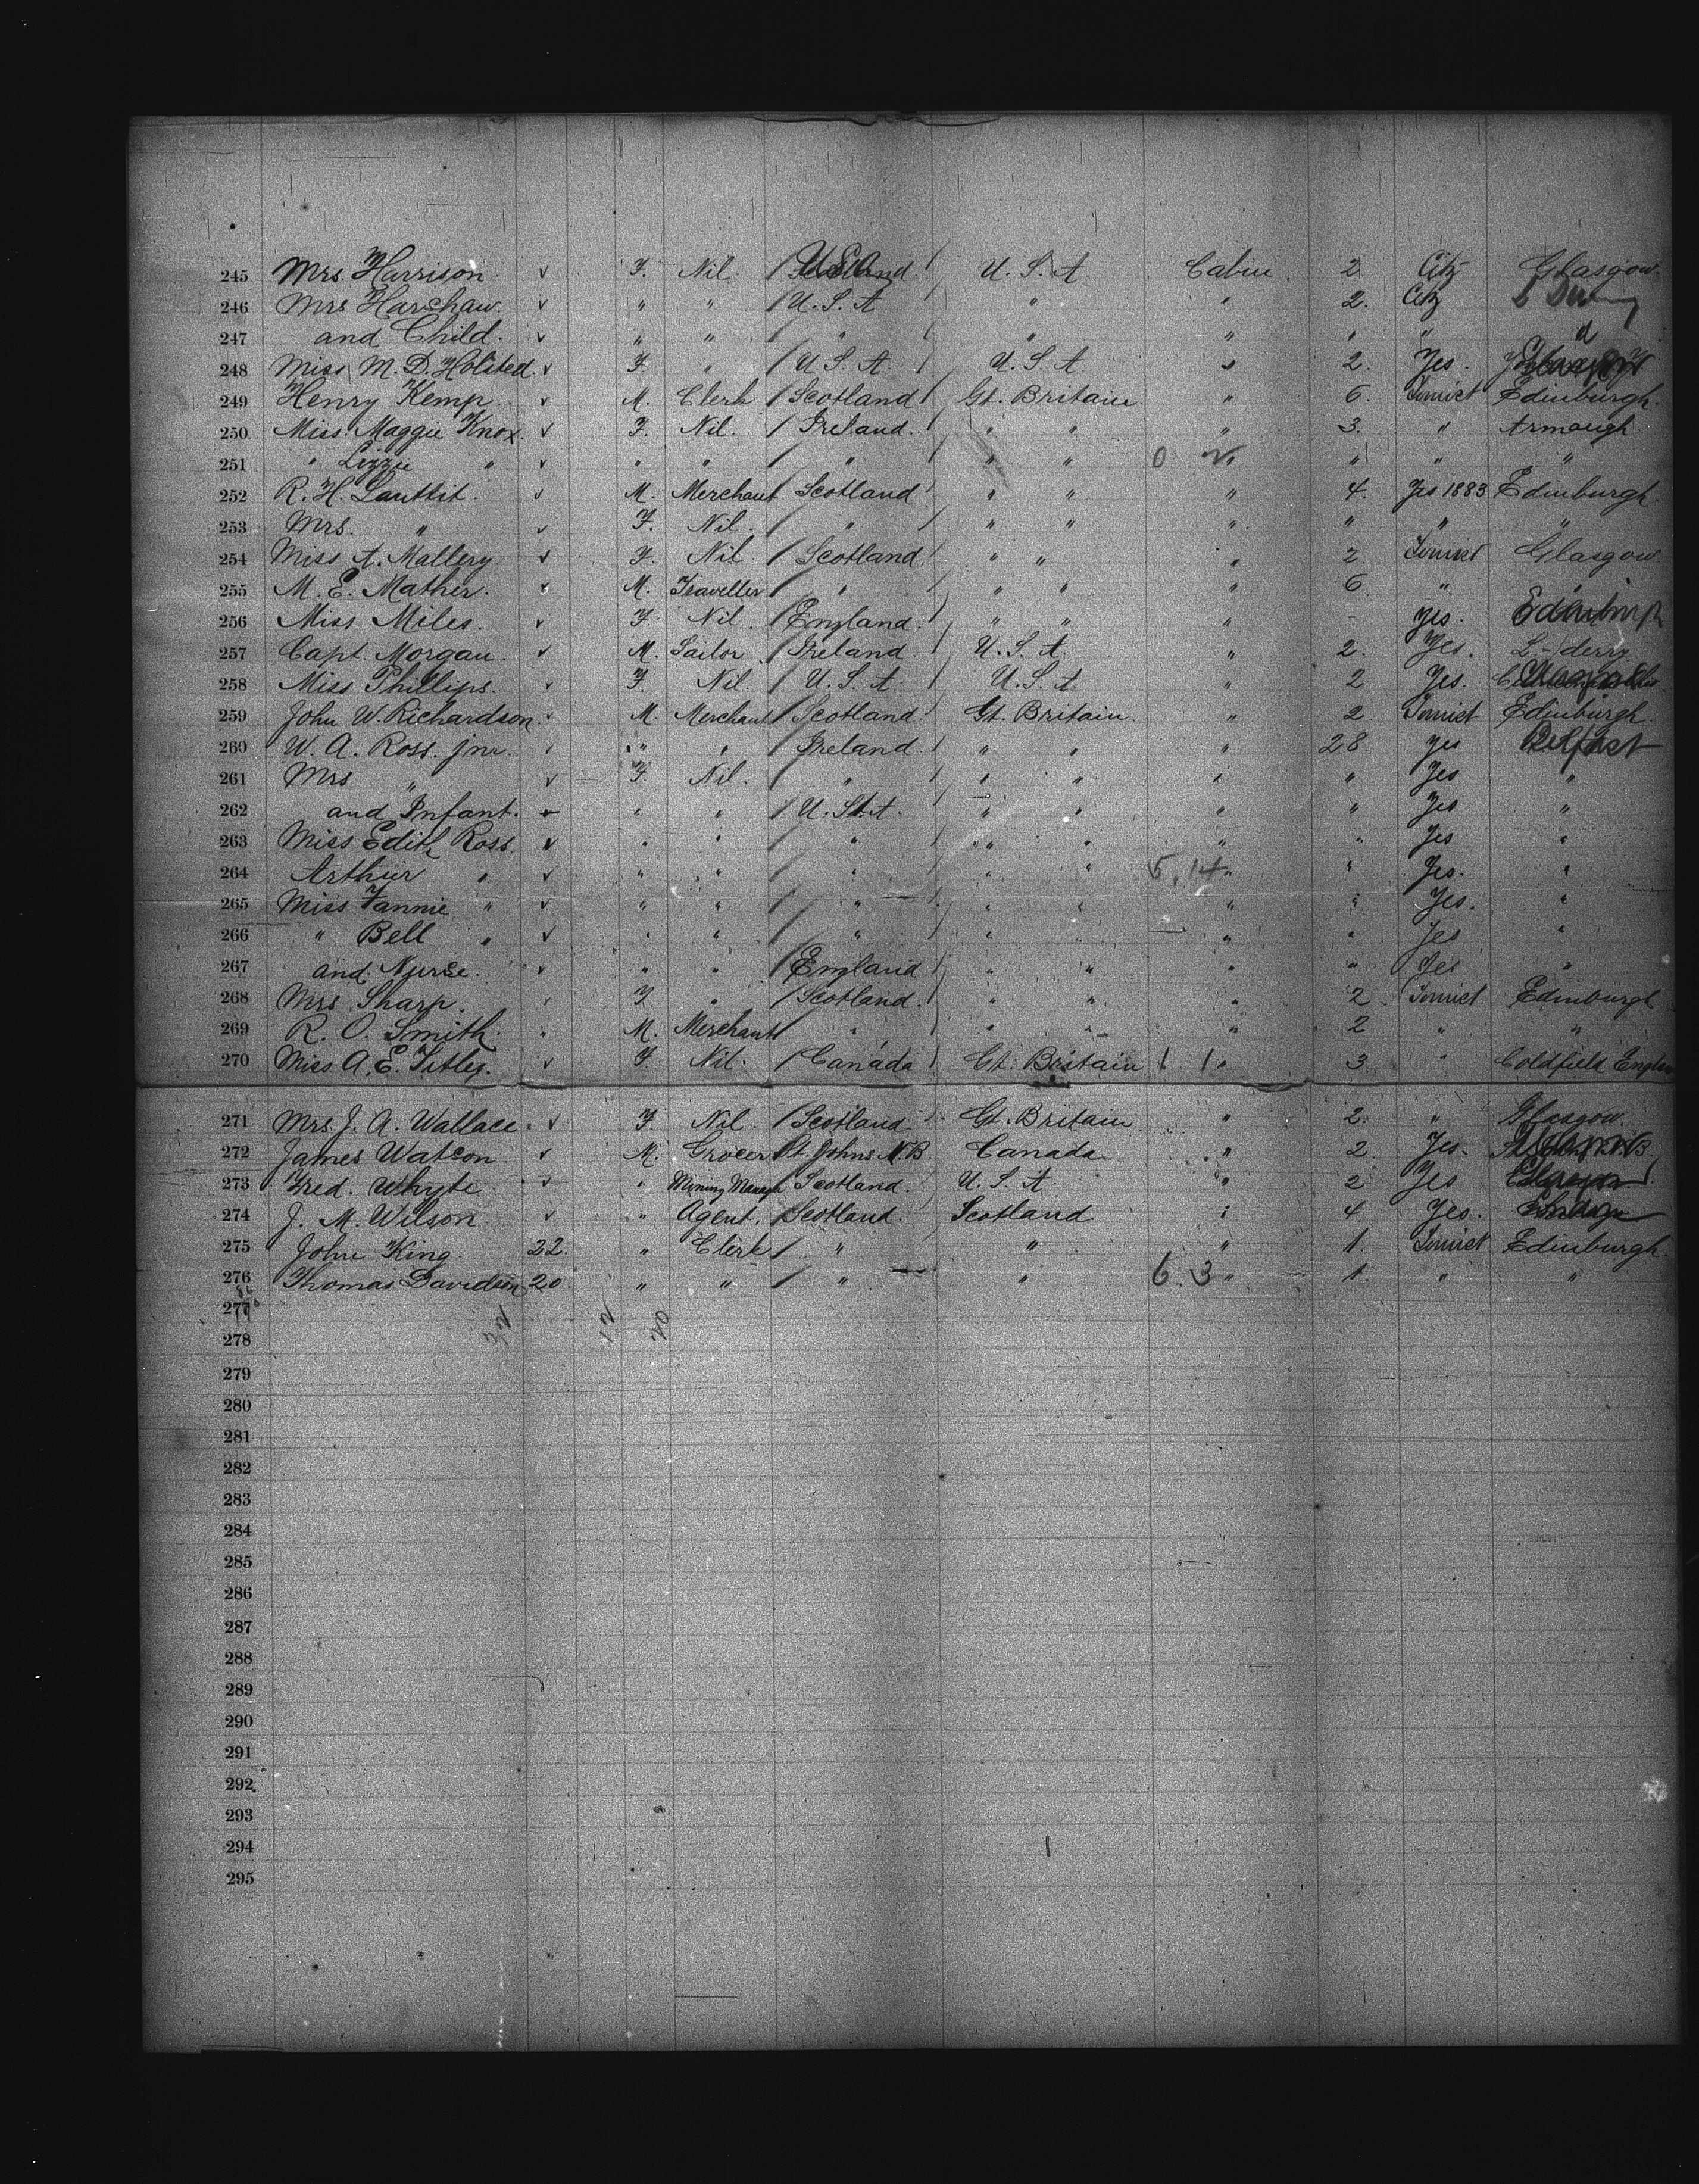 245 Mrs. Harrison. v F. Nil. / U.S.A / U.S.A Cabin 2 City Glasgow.
246 Mrs Harshaw. v " " / U.S.A " " 2. City
247 and Child. v " " " " " " "
248 Miss M. D. Holsted. v F. " / U.S.A. U.S.A. " 2. Yes.
249 Henry Kemp. v M. Clerk / Scotland / Gt. Britain " 6. Tourist Edinburgh.
250 Miss Maggie Knox. v F. Nil. / Ireland. / " " " 3. " Armaugh
251 " Lizzie " v " " / " / " " " " " "
252 R. H. v M. Merchant Scotland / " " " 4. Yes 1883 Edinburgh
253 Mrs. " v F. Nil. / " / " " " " " "
254 Miss A. Mallery v F. Nil / Scotland / " " " 2 Tourist Glasgow
255 M. E. Mather. v M. Traveller / " / " " " 6 "
256 Miss Miles. v F. Nil. / England. / " " " - Yes. Edinburgh
257 Capt. Morgan. v M. Sailor / Ireland / U.S.A. " 2. Yes. L-derry
258 Miss Phillips. v F. Nil. / U.S.A / U.S.A " 2 Yes.
259 John W. Richardson v M Merchant / Scotland / Gt. Britain. " 2 Tourist Edinburgh.
260 W. A. Ross. jnr. v " " / Ireland. / " " " 28 yes Belfast
261 Mrs " v F Nil. / " / " " " " Yes "
262 and Infant. v " " / U.S.A. " " " " Yes "
263 Miss Edith Ross v " " " " " " " Yes "
264 Arthur " v " " / " " " 5. 14 " " Yes. "
265 Miss Fannie " v " " / " " " " " Yes. "
266 " Bell " v " " / " " " " Yes "
267 and Nurse. v " " / England / " " " " Yes "
268 Mrs Sharp. F. " / Scotland. / " " " 2 Tourist Edinburgh
269 R. O. Smith. " M. Merchant / " " " " 2 " "
270 Miss A. E. v F. Nil. / Canada / Gt. Britain 1 1 " 3 " Coldfield
271 Mrs. J. A. Wallace. v F. Nil. / Scotland Gt. Britain " 2. " Glasgow.
272 James Watson v M. Grocer St. Johns N.B. Canada " 2 Yes.
273 Fred. Whyte v " Mining Manager Scotland. U.S.A " 2 Yes
274 J. M. Wilson v " Agent. / Scotland. Scotland " 4 Yes.
275 John King. 22. " Clerk / " " " 1. Tourist Edinburgh.
276 Thomas Davidson 20. " " / " " 6. 3 " 1. " "
277
32 12 20
278
279
280
281
282
283
284
285
286
287
288
289
290
291
292
293
294
295